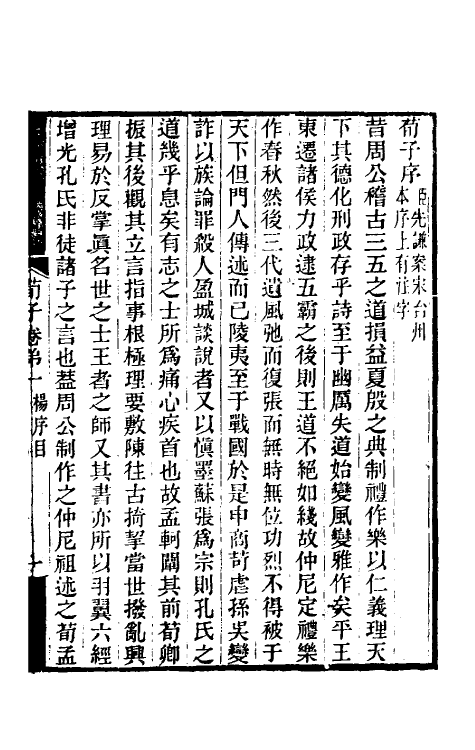 荀子序臣先謙案宋台州
本序上有注字
昔周公稽古三五之道損益夏殷之典制禮作樂以仁義理天
下其德化刑政存乎詩至于幽厲失道始變風變雅作矣平王
東遷諸侯力政逮五霸之後則王道不絕如綫故仲尼定禮樂
作春秋然後三代遺風弛而復張而無時無位功烈不得被于
天下但門人傳述而已陵夷至于戰國於是申商苛虐孫吳變
詐以族論罪殺人盈城談說者又以愼墨蘇張爲宗則孔氏之
道幾乎息矣有志之士所爲痛心疾首也故孟軻闢其前荀卿
振其後觀其立言指事根極理要敷陳往古掎挈當世撥亂興
理易於反掌眞名世之士王者之師又其書亦所以羽翼六經
增光孔氏非徒諸子之言也蓋周公制作之仲尼祖述之荀孟
荀子卷第一 楊序目